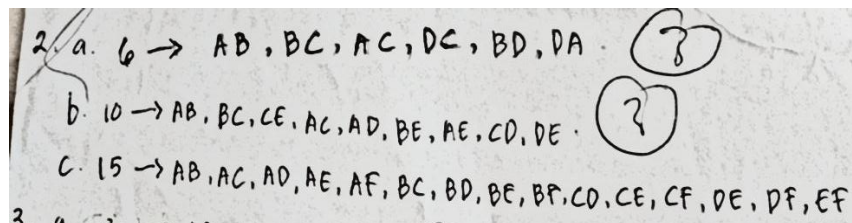 2. a. 6 → AB, BC, AC, DC, BD, DA. ?
b. 10 → AB, BC, CE, AC, AD, BE, AE, CD, DE. ?
C. 15 → AB, AC, AD, AE, AF, BC, BD, BE, BF, CD, CE, CF, DE, DF, EF
3